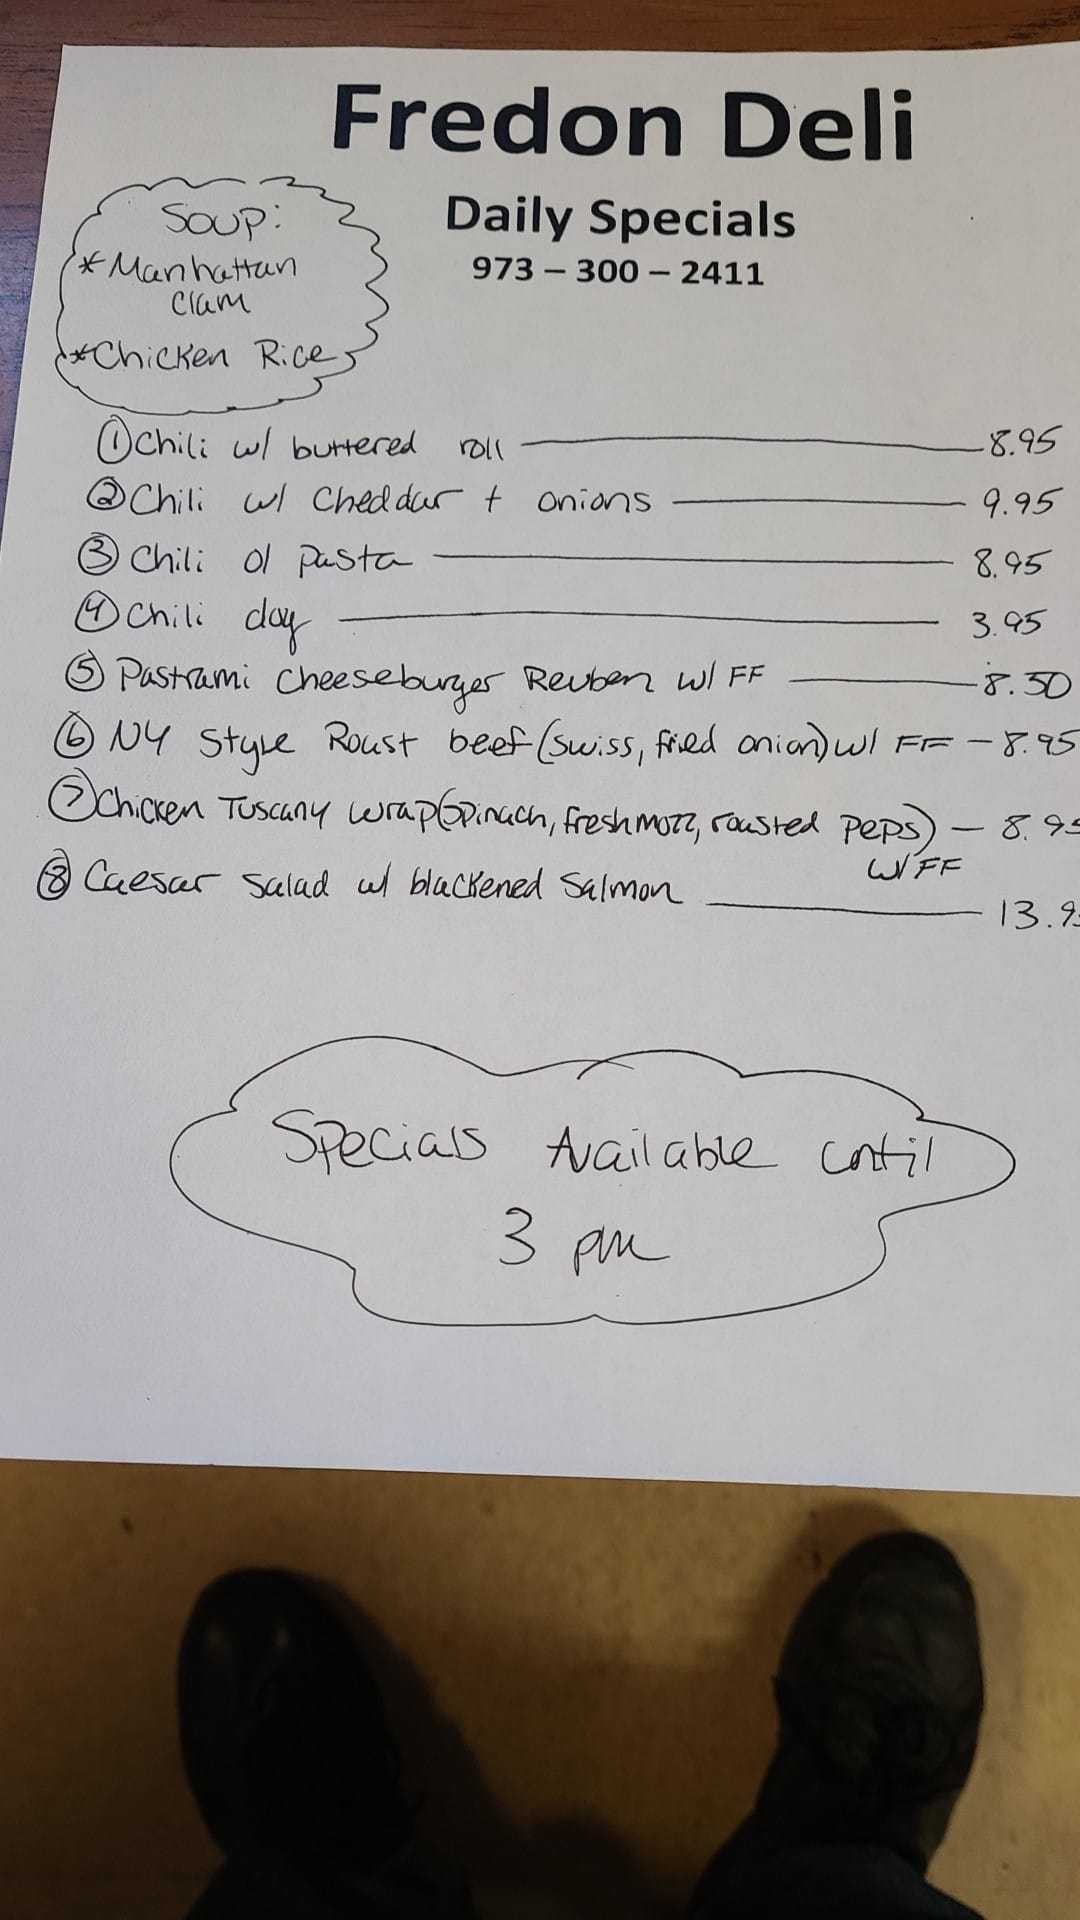 Fredon Deli
Daily Specials
973 – 300 – 2411
Soup:
*Manhattan
Clam
*Chicken Rice
① Chili w/ buttered roll — 8.95
② Chili w/ Cheddar + onions — 9.95
③ Chili o/ Pasta — 8.95
④ Chili dog — 3.95
⑤ Pastrami Cheeseburger Reuben w/ FF — 8.50
⑥ NY Style Roast beef (swiss, fried onion) w/ FF — 8.95
⑦ Chicken Tuscany wrap (spinach, fresh mozz, roasted peps) — 8.95
w/ FF
⑧ Caesar Salad w/ blackened Salmon — 13.9
Specials Available until
3 pm